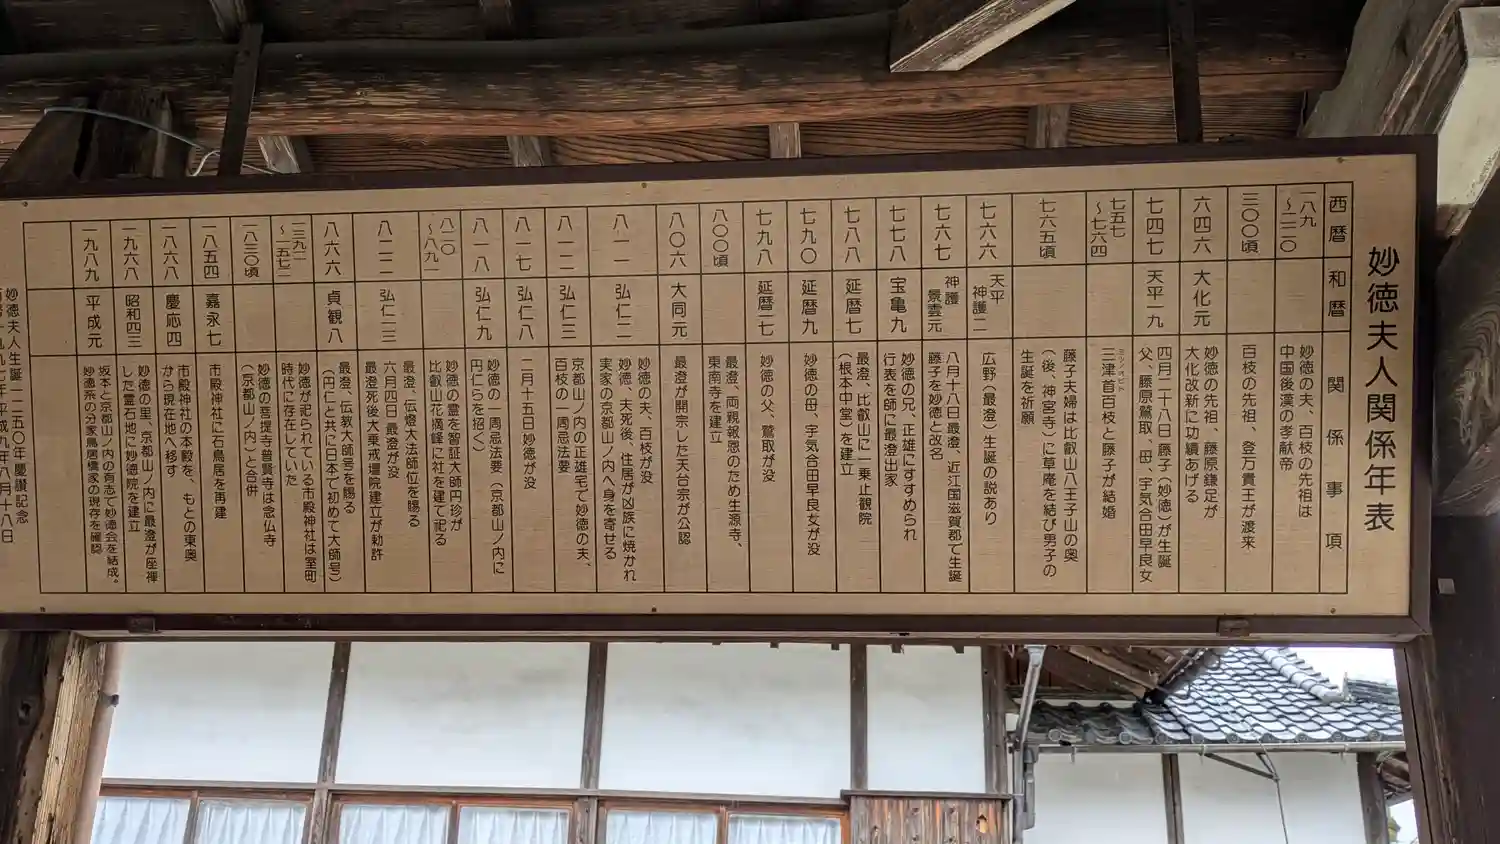 妙徳夫人関係年表
西暦 和暦 関係事項
一八九
〜二二〇
妙徳の夫、百枝の先祖は
中国後漢の孝献帝
三〇〇頃
百枝の先祖、登万貴王が渡来
六四六
大化元
妙徳の先祖、藤原鎌足が
大化改新に功績あげる
七四七
天平一九
四月二十八日藤子(妙徳)が生誕
父、藤原鷲取、母、宇気合田早良女
七五七
〜七六四
三津首百枝と藤子が結婚
七六五頃
藤子夫婦は比叡山八王子山の奥
(後、神宮寺)に草庵を結び男子の
生誕を祈願
七六六
天平
神護二
広野(最澄)生誕の説あり
七六七
神護
景雲元
八月十八日最澄、近江国滋賀郡で生誕
藤子を妙徳と改名
七七八
宝亀九
妙徳の兄、正雄にすすめられ
行表を師に最澄出家
七八八
延暦七
最澄、比叡山に一乗止観院
(根本中堂)を建立
七九〇
延暦九
妙徳の母、宇気合田早良女が没
七九八
延暦一七
妙徳の父、鷲取が没
八〇〇頃
最澄、両親報恩のため生源寺、
東南寺を建立
八〇六
大同元
最澄が開宗した天台宗が公認
八一一
弘仁二
妙徳の夫、百枝が没
妙徳、夫死後、住居が凶族に焼かれ
実家の京都山ノ内へ身を寄せる
八一二
弘仁三
京都山ノ内の正雄宅で妙徳の夫、
百枝の一周忌法要
八一七
弘仁八
二月十五日妙徳が没
八一八
弘仁九
妙徳の一周忌法要(京都山ノ内に
円仁らを招く)
八二〇
〜八九一
妙徳の霊を智証大師円珍が
比叡山花摘峰に社を建て祀る
八二二
弘仁一三
最澄、伝燈大法師位を賜る
六月四日 最澄が没
最澄死後大乗戒壇院建立が勅許
八六六
貞観八
最澄、伝教大師号を賜る
(円仁と共に日本で初めて大師号)
一三九二
〜一五七三
妙徳が祀られている市殿神社は室町
時代に存在していた
一八三〇頃
妙徳の菩提寺普賢寺は念仏寺
(京都山ノ内)と合併
一八五四
嘉永七
市殿神社に石鳥居を再建
一八六八
慶応四
市殿神社の本殿を、もとの東奥
から現在地へ移す
一九六八
昭和四三
妙徳の里、京都山ノ内に最澄が座禅
した霊石地に妙徳院を建立
一九八九
平成元
坂本と京都山ノ内の有志で妙徳会を結成。
妙徳系の分家鳥居橋家の現存を確認
妙徳夫人生誕一二五〇年慶讃記念
西暦一九九七年平成九年八月十八日